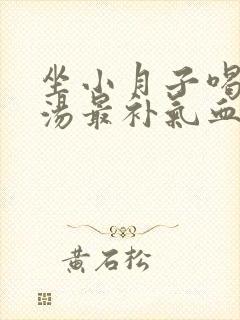 坐小月子喝
汤最补气血
黄石松